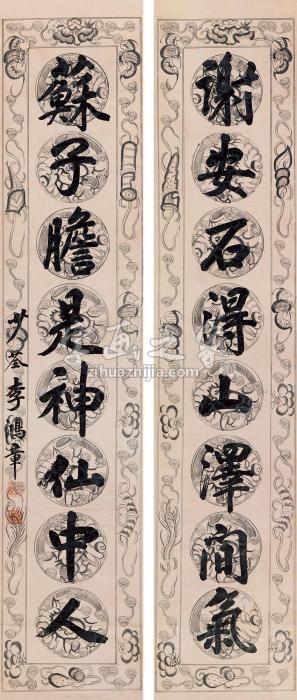 謝安石得山澤間氣
蘇子瞻是神仙中人
少荃李鴻章
字画之家
zihuazhijia.com